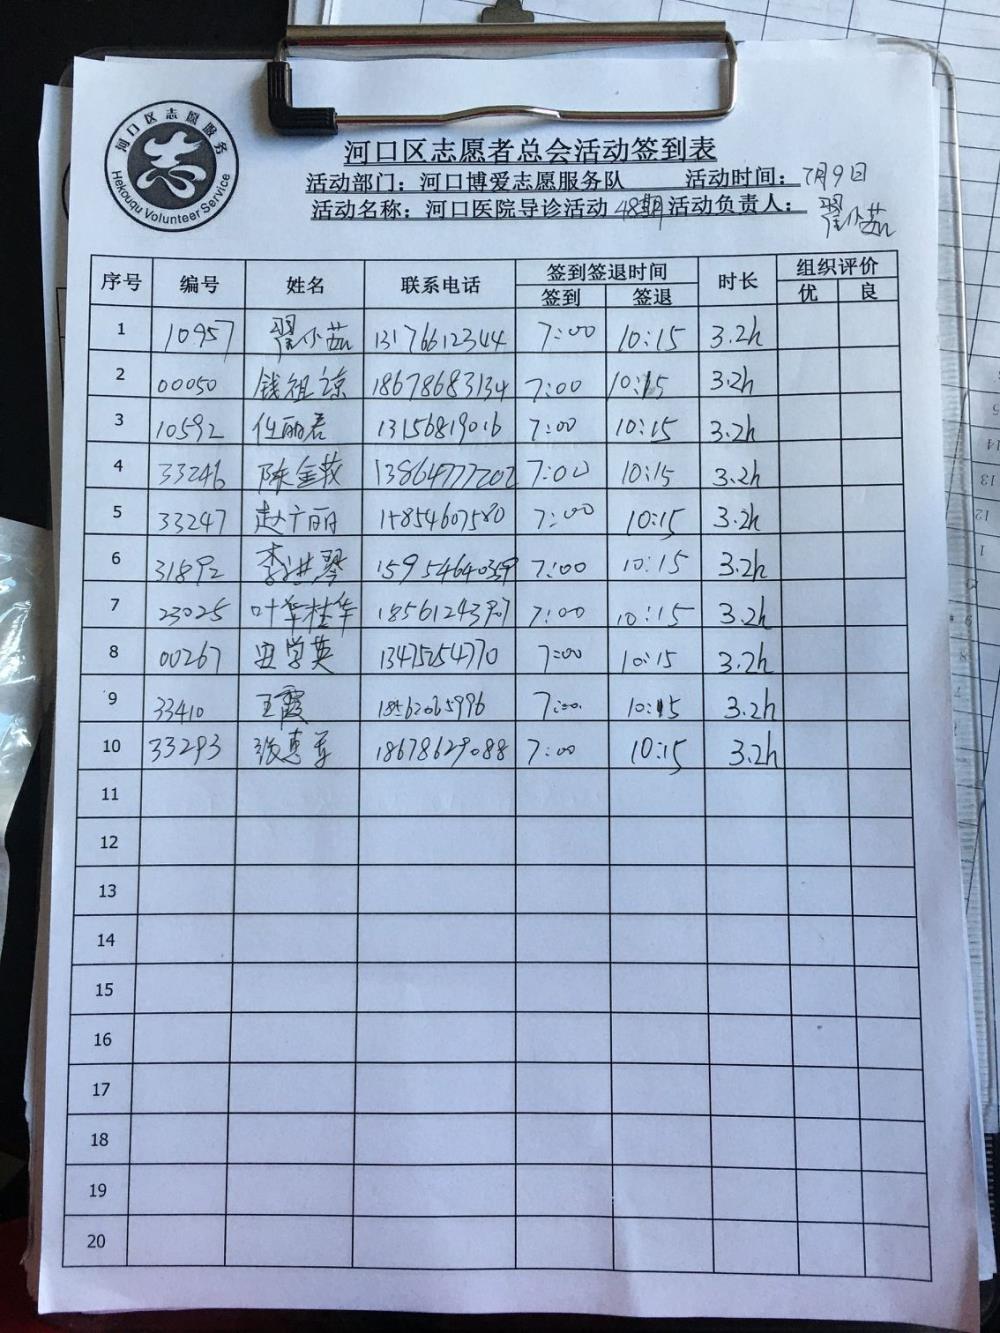 河口区志愿服务
Hekouqu Volunteer Service
河口区志愿者总会活动签到表
活动部门：河口博爱志愿服务队 活动时间：7月9日
活动名称：河口医院导诊活动48期 活动负责人：翟小茹
序号 编号 姓名 联系电话 签到签退时间 时长 组织评价
签到 签退 优 良
1 10957 翟小茹 13176612344 7:00 10:15 3.2h
2 00050 钱祖谅 18678683134 7:00 10:15 3.2h
3 10592 任丽君 13156819016 7:00 10:15 3.2h
4 33246 陈金 13864777202 7:00 10:15 3.2h
5 33247 赵广丽 15854607580 7:00 10:15 3.2h
6 31892 李洪琴 15954640359 7:00 10:15 3.2h
7 23025 叶华桂华 18561243907 7:00 10:15 3.2h
8 00267 学英 13475254770 7:00 10:15 3.2h
9 33410 王霞 18562065996 7:00 10:15 3.2h
10 33293 张惠军 18678629088 7:00 10:15 3.2h
11
12
13
14
15
16
17
18
19
20